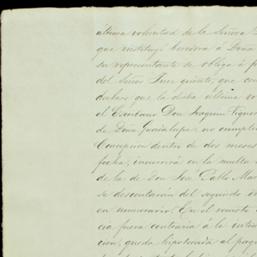 última voluntad de la Señora
que instituyó heredera á Doña
su representante se obliga á
del Señor Juez quinto, que
declare que la dicha última vo
el Escribano Don Joaquin Figue
de Doña Guadalupe no cumplie
Concepcion dentro de dos meses
fecha, incurrirá en la multa
de la de Don José Pablo Mar
se descontarán del segundo
en numerario. En el remoto
cia fuera contraria á la
cion, queda hipotecada al pago